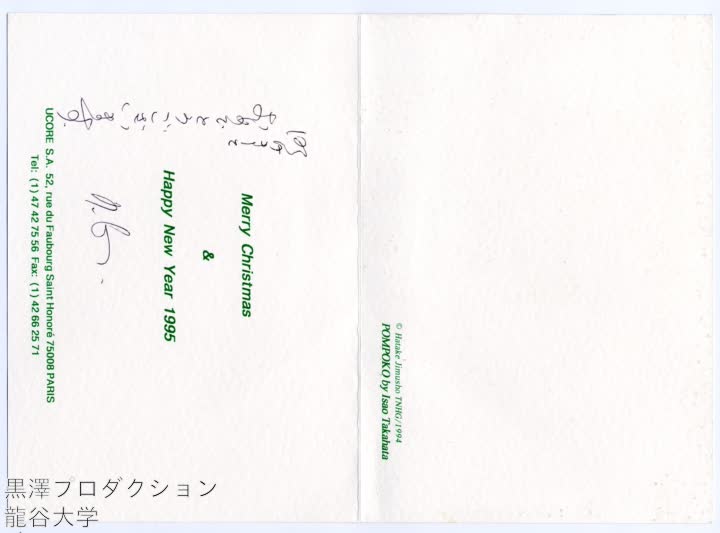 Merry Christmas
&
Happy New Year 1995
UCORE S.A. 52, rue du Faubourg Saint Honoré 75008 PARIS
Tel: (1) 47 42 75 56 Fax: (1) 42 66 25 71
© Hatake Jimusho TNHG/1994
POMPOKO by Isao Takahata
黒澤プロダクション
龍谷大学